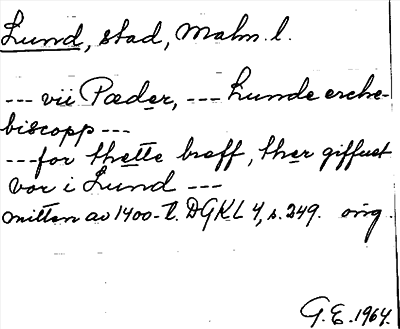 Lund, stad, Malm. l.
--- vii Pæder, --- Lunde erche-
biscopp ---
--- for thette breff, ther giffuet
vor i Lund ---
mitten av 1400-t. DGKL 4, s. 249. orig.
G.E. 1964.